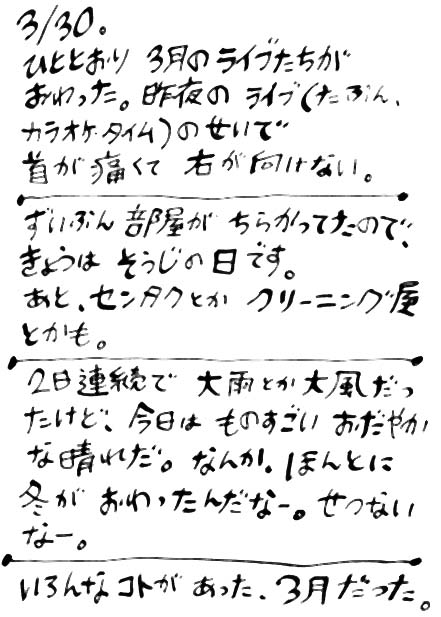 3/30。
ひととおり 3月のライブたちが
おわった。昨夜の ライブ(たぶん、
カラオケ・タイム)のせいで
首が痛くて 右が向けない。
ずいぶん部屋が ちらかってたので、
きょうは そうじの日です。
あと、センタクとか クリーニング屋
とかも。
2日連続で 大雨とか大風だっ
たけど、今日は ものすごい おだやか
な晴れだ。なんか、ほんとに
冬が おわったんだなー。せつない
なー。
いろんなコトが あった、3月だった。